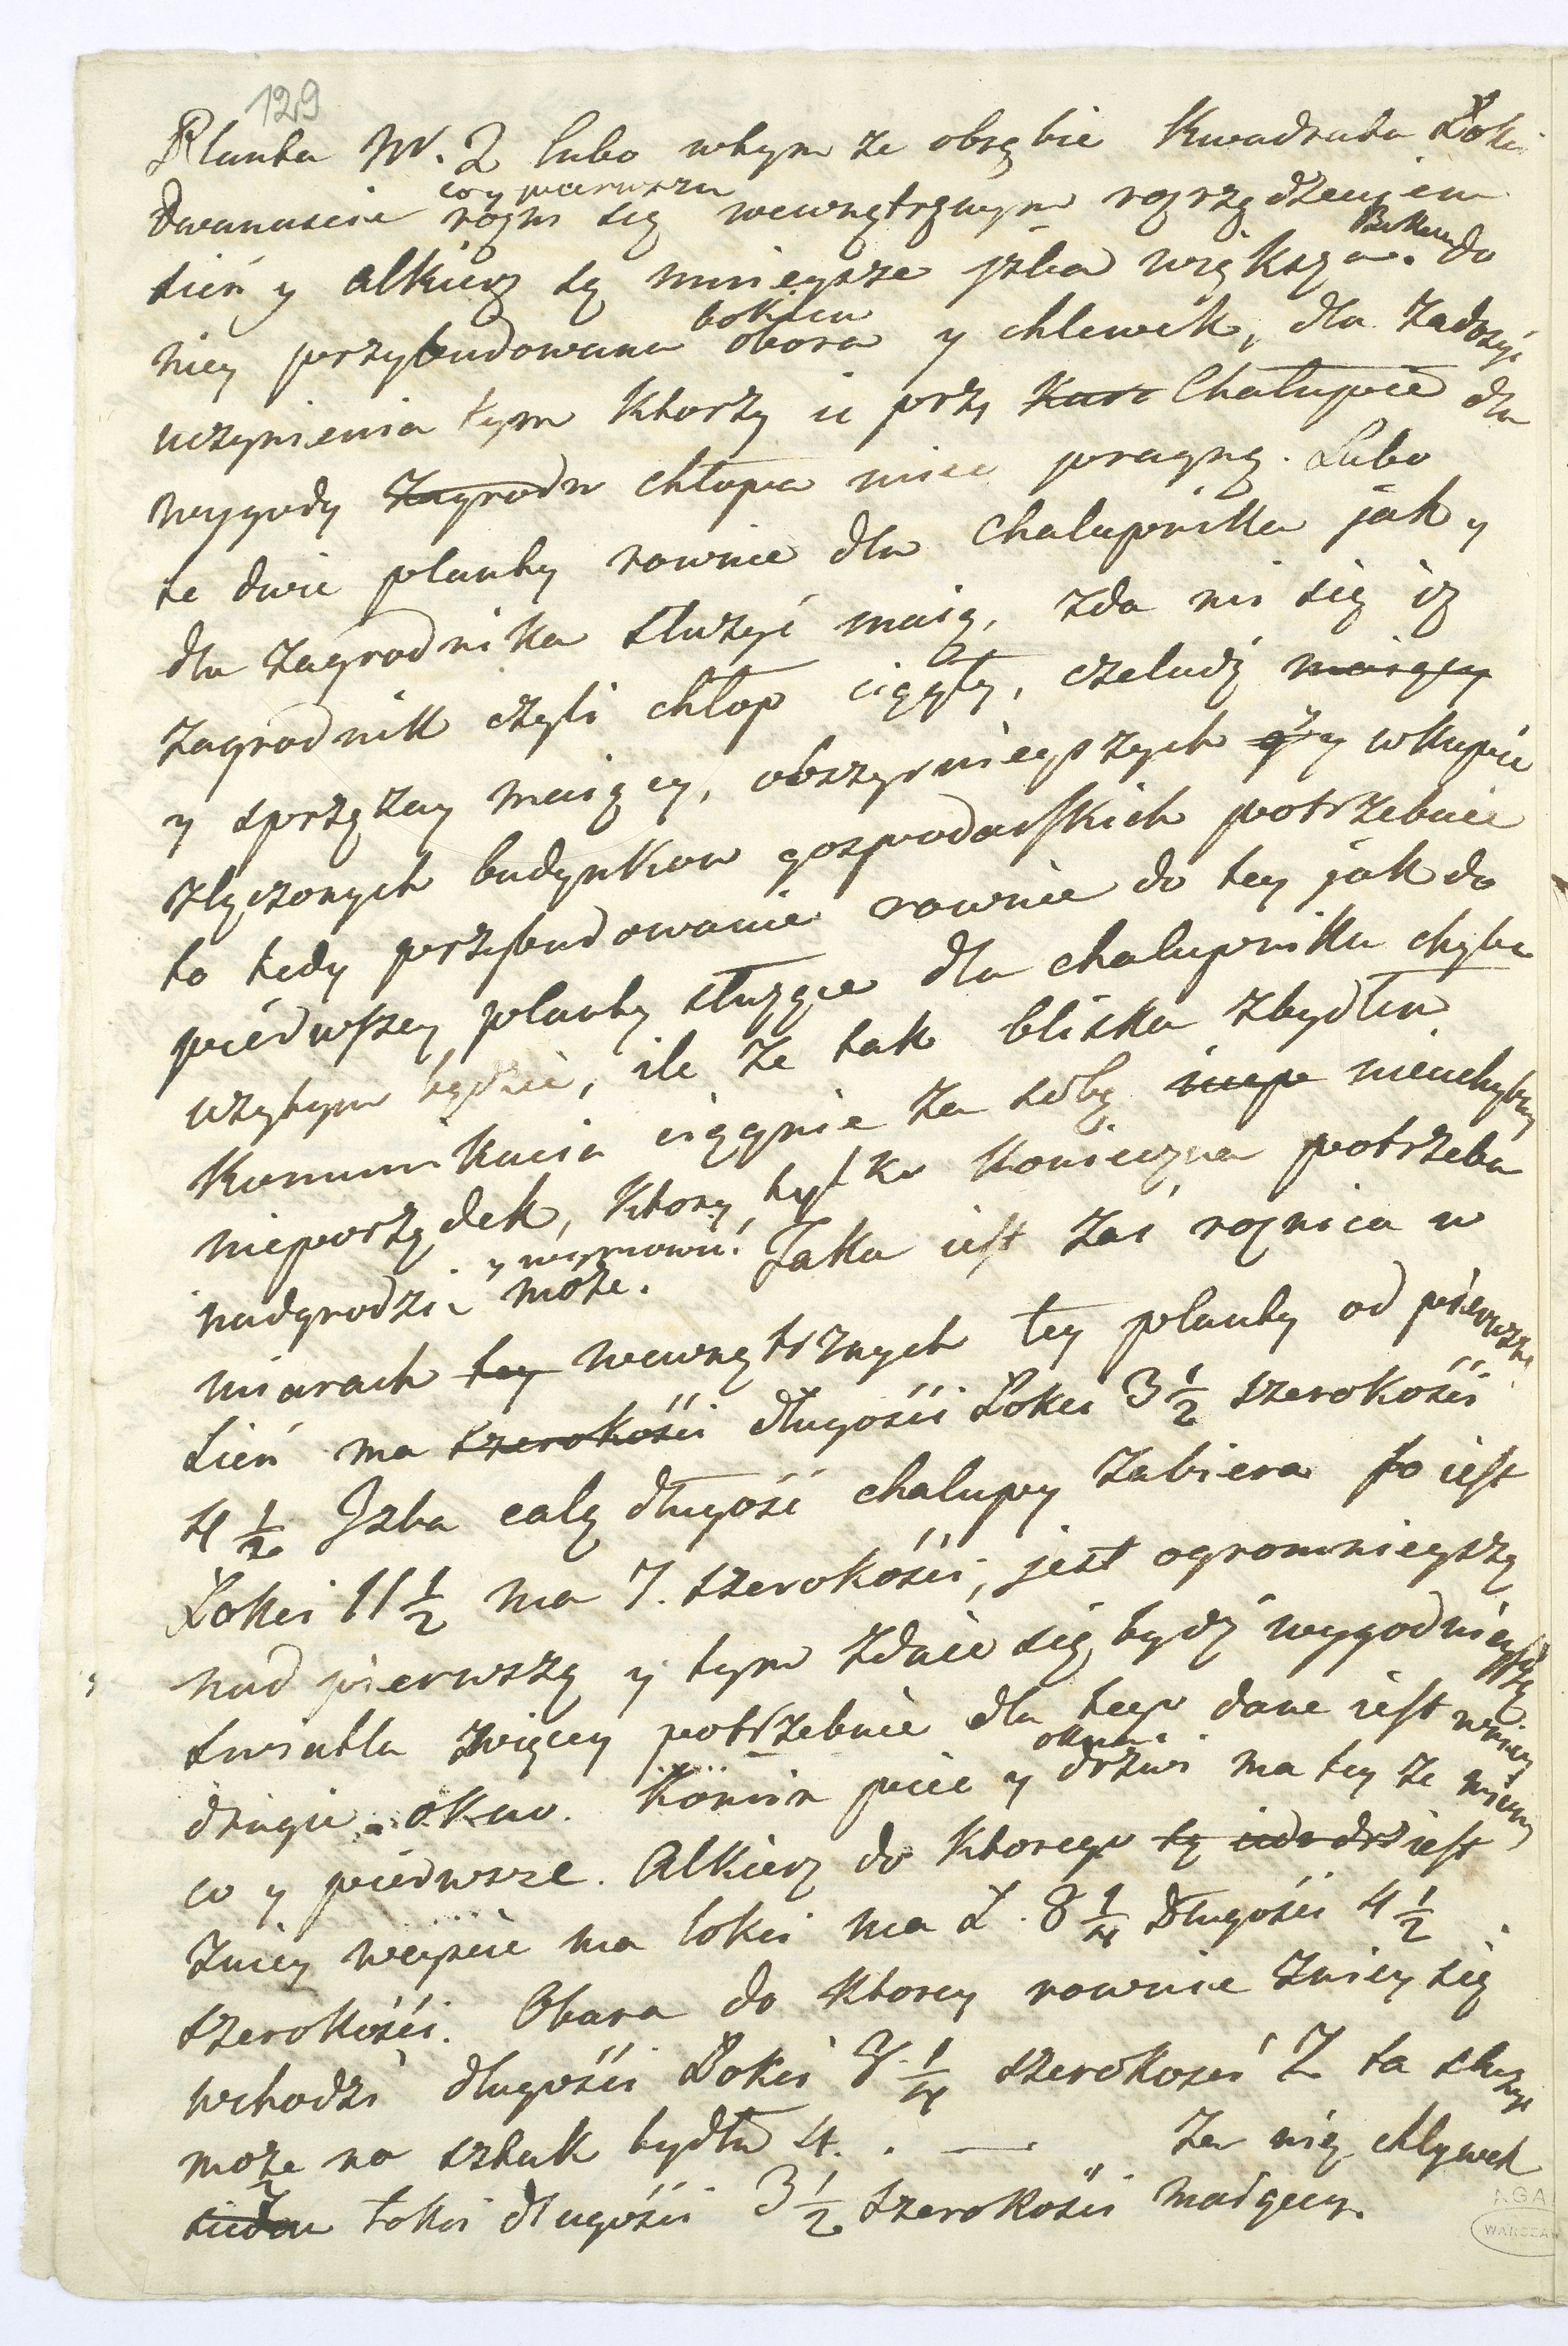 129
Planta Nr. 2 lubo wtym ze obrębie Kwadratu Łokci
Dwanascie co y pierwsza rozni się wewnętrznym rozrządzeniem
sień y alkierz są mnieysze jzba większa. Bokiem do
niey przybudowana bokiem obora y chlewek, dla zadosyć
uczynienia tym Ktorzy ie przy Chałupie dla
wygody chłopa miec pragną. Lubo
te dwie planty rownie dla Chalupnika jak y
dla Zagrodnika służyć maią, zda mi się iż
Zagrodnik czyli chłop ciągły, czeladź maiący
y sprzężay maiący, obszyrnieyszych y wkupie
złączonych budynkow gospodarskich potrzebuie
to tedy przybudowanie rownie do tey jak do
pierwszey planty służące dla chalupnika chyba
użytym będzie, ile że tak bliska zbydłem
Kommunikacia ciągnie za sobą nieuchybny
nieporządek, Ktory tylko Konieczna potrzeba
nadgrodzić y wymowić może. Taka iest zaś roznica w
miarach tey wewnętrznych tey planty od pierwszey
sień ma szerokości długości Łokci 3 1/2 szerokości
4 1/2 Jzba całą długość chalupy zabiera to iest
Łokci 11 1/2 ma 7. szerokości, jest ogromnieyszą
nad pierwszą y tym zdaie się bydź wygodnieyszą
swiatła więcey potrzebuie dla tego dane iest wniey
drugie okno. Komin piec y drzwi okna ma tey że miary
co y pierwsze. Alkierz do Ktorego iest
zniey weyście ma Ł. 8 1/4 długości 4 1/2
szerokości. Obora do Ktorey rownie zniey się
wchodzi długości Łokci 8 1/4 szerokosci 7 ta służyć
może na sztuk bydła 4. . — Za nią chlywek
7 łokci długości 3 1/2 szerokości maiący.
AGA
WARSZAW